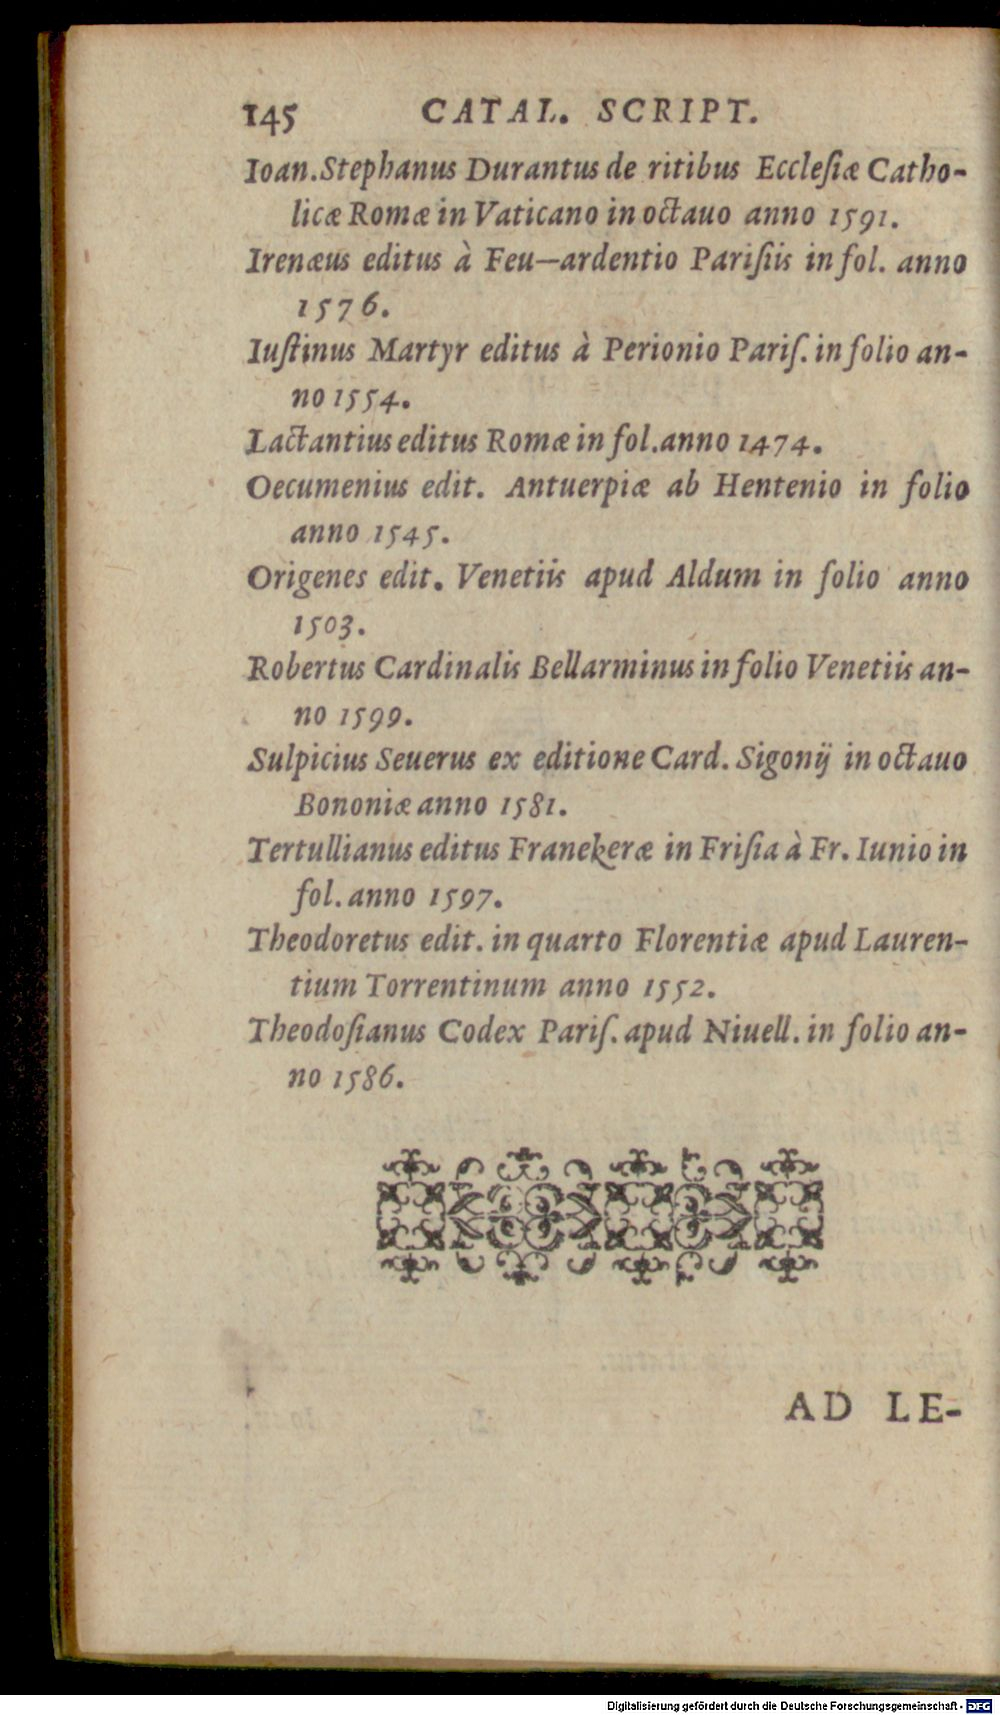 145 CATAL. SCRIPT.
Ioan. Stephanus Durantus de ritibus Ecclesiæ Catho-
licæ Romæ in Vaticano in octauo anno 1591.
Irenæus editus à Feu—ardentio Parisiis in fol. anno
1576.
Iustinus Martyr editus à Perionio Paris. in folio an-
no 1554.
Lactantius editus Romæ in fol. anno 1474.
Oecumenius edit. Antuerpiæ ab Hentenio in folio
anno 1545.
Origenes edit. Venetiis apud Aldum in folio anno
1503.
Robertus Cardinalis Bellarminus in folio Venetiis an-
no 1599.
Sulpicius Seuerus ex editione Card. Sigonij in octauo
Bononiæ anno 1581.
Tertullianus editus Franekeræ in Frisia à Fr. Iunio in
fol. anno 1597.
Theodoretus edit. in quarto Florentiæ apud Lauren-
tium Torrentinum anno 1552.
Theodosianus Codex Paris. apud Niuell. in folio an-
no 1586.
AD LE-
Digitalisierung gefördert durch die Deutsche Forschungsgemeinschaft - DFG